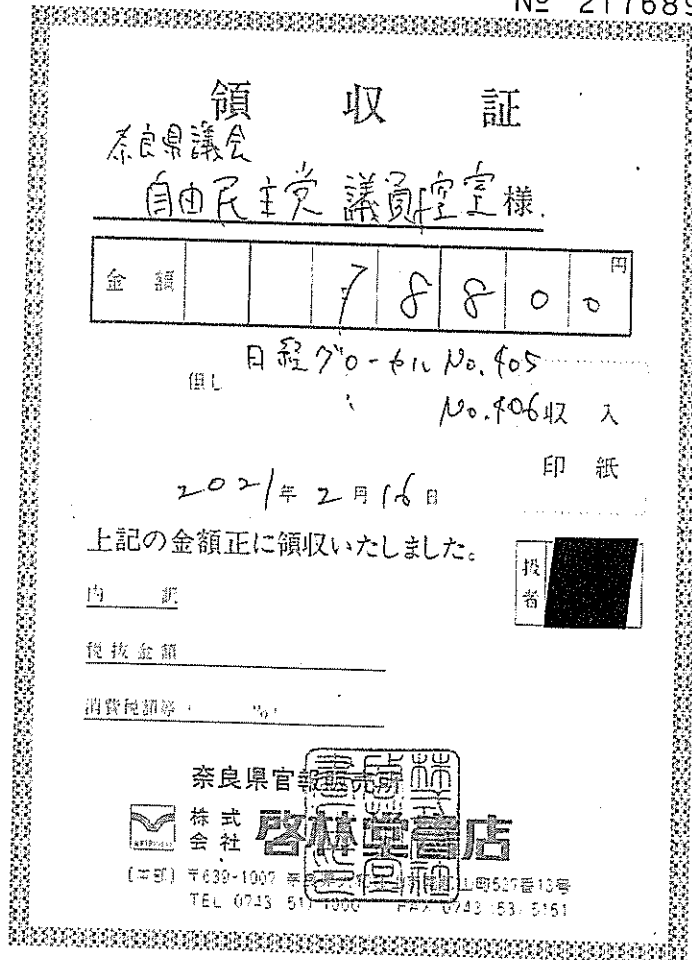 № 217689
領収証
奈良県議会
自由民主党 議員控室様
金額 7 8 8 0 0 円
但し 日経グローカル No.405
No.406
収入
印紙
2021年2月16日
上記の金額正に領収いたしました。
扱者
内訳
税抜金額
消費税額等( %)
奈良県官報販売所
株式会社 啓林堂書店
〒639-1007
山町527番13号
TEL 0743 51 1000 FAX 0743 53 5151